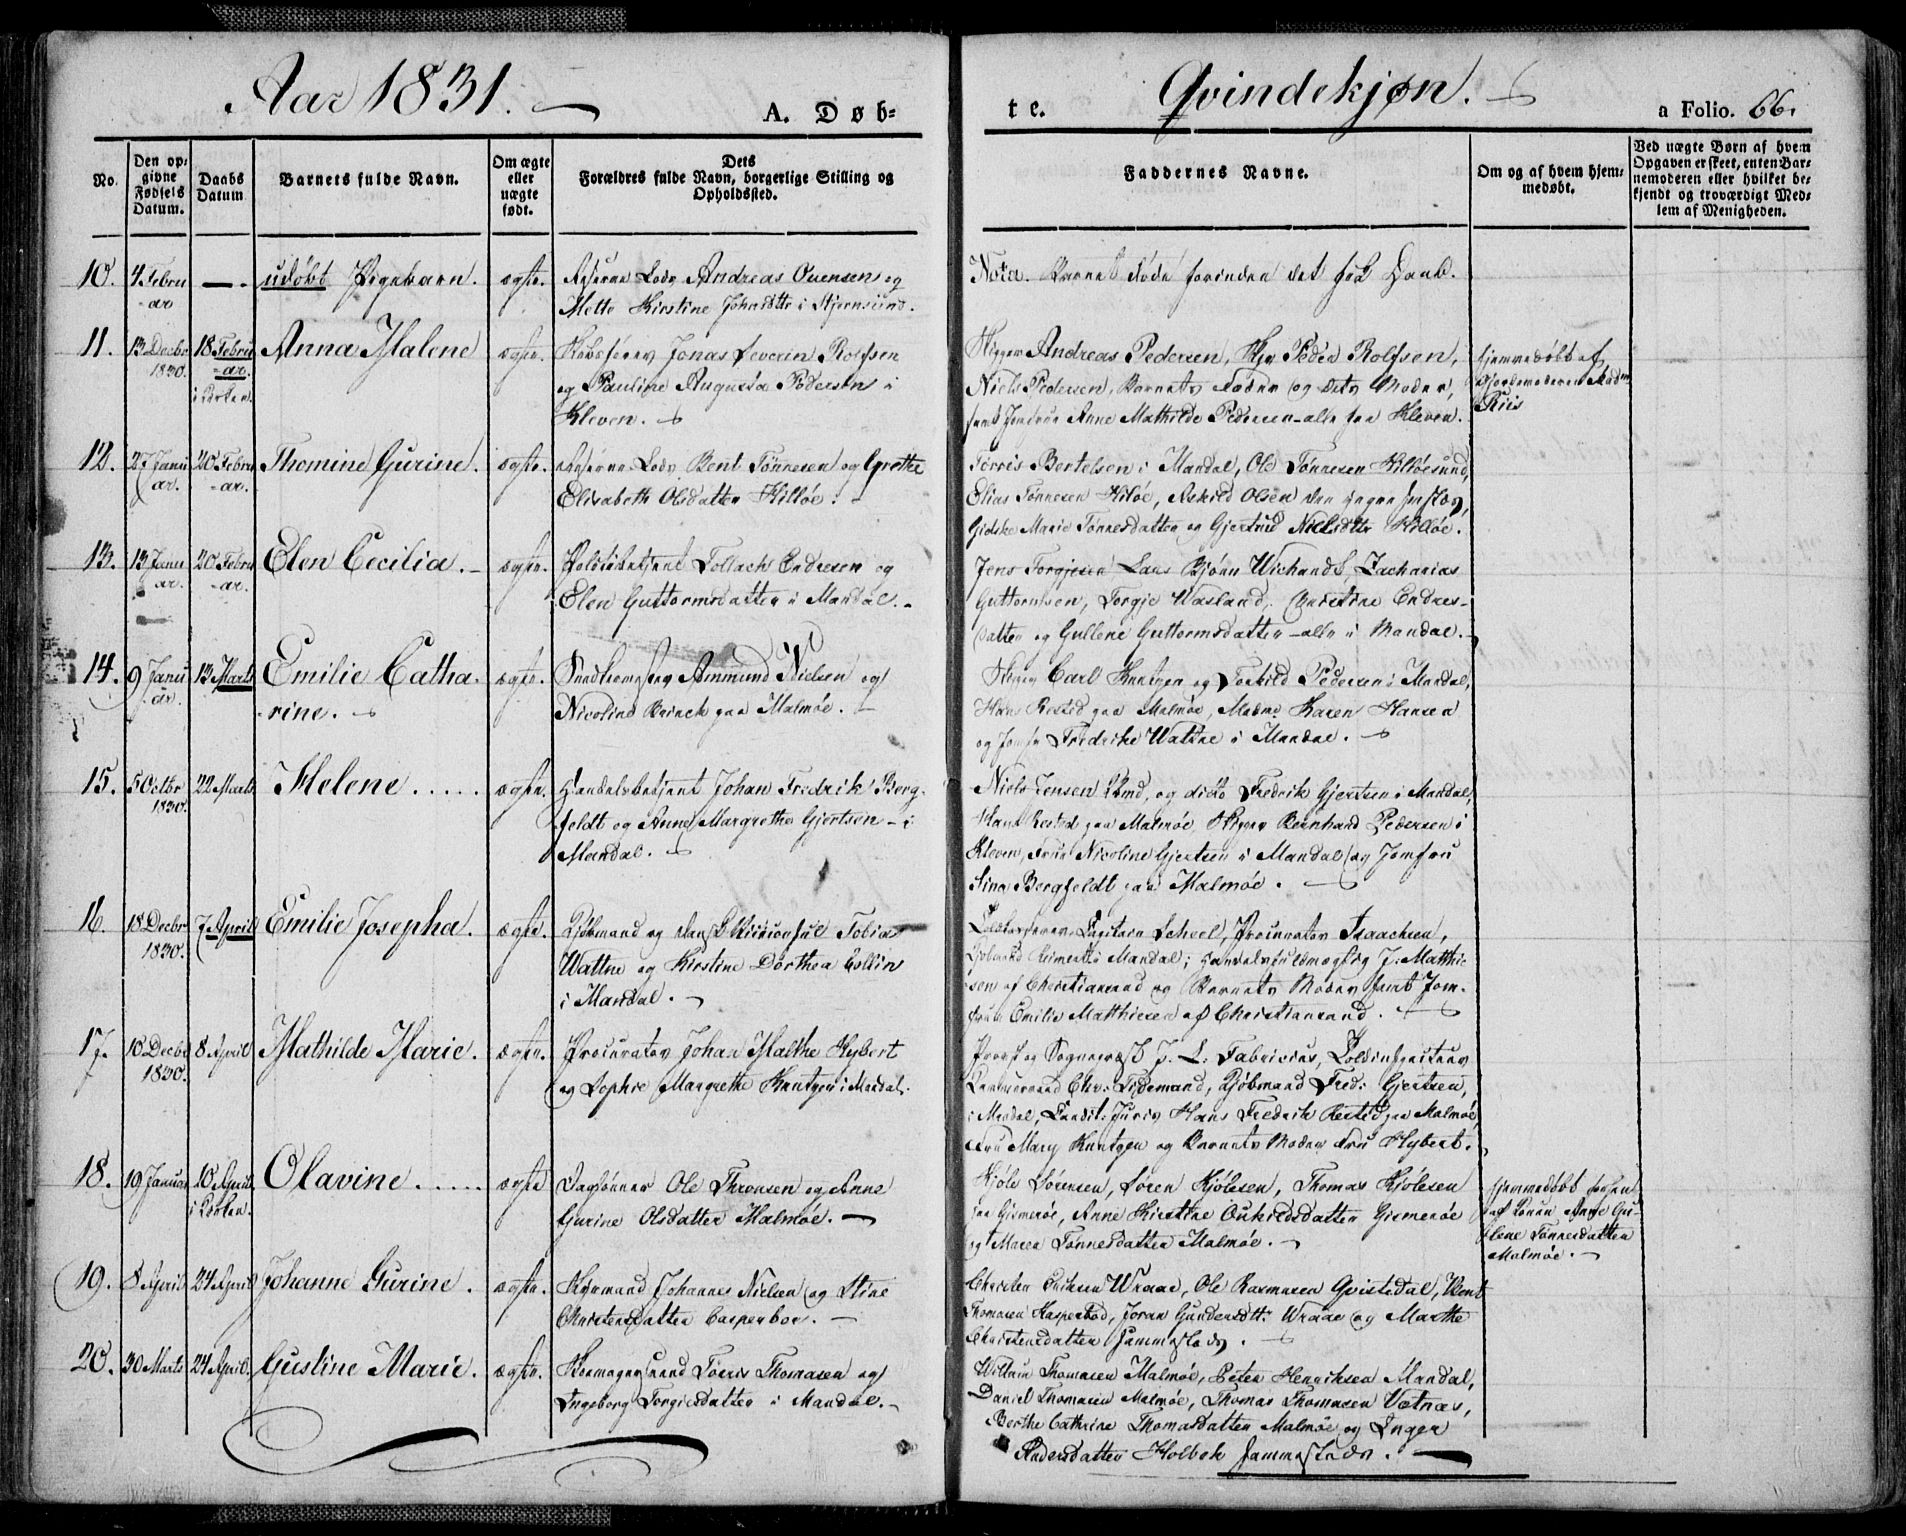 Aar 1831.
A. Døb=
te.
Qvindekjøn.
a Folio. 66.
No.
Den op=
givne
Fødsels
Datum.
Daabs
Datum
Barnets fulde Navn.
Om ægte
eller
uægte
født.
Dets
Forældres fulde Navn, borgerlige Stilling og
Opholdssted.
Faddernes Navne.
Om og af hvem hjem=
medøbt.
Ved uægte Børn af hvem
Opgaven er skeet, enten Bar=
nemoderen eller hvilket be=
kjendt og troværdigt Med=
lem af Menigheden.
10.
4 Febru
-ar
udøbt Pigebarn.
ægte.
Lods Andreas Ouensen og
Mette Kirstine Johnsdttr i Stjernsund.
Nota. Barnet døde forinden det fik Daab.
11.
13 Decbr
1830.
18 Febru
-ar.
i Kirken.
Anna Malene
ægte.
Jonas Severin Rolfsen
og Pauline Augusta Pedersen i
Kleven.
Skipper Andreas Pedersen, Peder Rolfsen,
Niels Pedersen, Barnets Fader og dets Moder,
samt Jomfrue Anne Mathilde Pedersen - alle fra Kleven.
hjemmedøbt af
Gjordemoderen Mad.
Riis
12.
27 Janu
ar.
20 Febru
-ar.
Thomine Gurine.
ægte.
Lods Bent Tønnesen og Grethe
Elisabeth Olsdatter Hilløe.
Tørris Bertelsen i Mandal, Ole Tønnesen Hilløesund,
Elias Tønnesen Hiløe, Askild Olsen den yngre
Gidske Marie Tønnesdatter og Gjertrud Nielsdttr Hilløe.
13.
13 Janu
ar.
20 Febru
-ar.
Elen Cecilia.
ægte.
Politibetjent Tollach Endresen og
Elen Guttormsdatter i Mandal.
Jens Torgjesen Lans Bjørn Wichandt, Zacharias
Guttormsen, Torgje Wasland, Christine Endres-
datter og Gullene Guttormsdatter - alle i Mandal.
14.
9 Janu
ar.
13 Marts
Emilie Catha
-rine.
ægte.
Ammund Nielsen og
Nicoline Brinch paa Malmøe.
Skipper Carl Kuntzen og Torkild Pedersen i Mandal,
Hans Rested paa Malmøe, Madme Karen Hansen
og Jomfr Fredrike Wattne i Mandal.
15.
5 Octbr
1830.
22 Marts
Helene.....
ægte.
Handelsbetjent Johan Fredrik Berg-
feldt og Anne Margrethe Gjertsen - i
Mandal.
Niels Jensen og dito Fredrik Gjertsen i Mandal,
Hans Rested paa Malmøe, Skipper Bernhard Pedersen i
Kleven, Frue Nicoline Gjertsen i Mandal og Jomfru
Sina Bergfeldt paa Malmøe.
16.
18 Decbr
1830.
7 April
Emilie Josepha.
ægte.
Kjøbmand og Tobias
Wattne og Kirstine Dorthea Collin
i Mandal.
Capitain Scheel, Procurator Isaachsen,
Kjøbmand i Mandal; Handelsfuldmægtig J: Matthie
sen af Christiansand og Barnets Moder samt Jom-
frue Emilie Matthiesen af Christiansand.
17.
10 Decbr
1830.
8 April
Mathilde Marie.
ægte.
Procurator Johan Malthe Hybert
og Sophie Margrethe Kuntzen i Mandal.
Provst og Sognepræst J. L: Fabricius, Toldinspecteur
Kammerraad Chr: Tidemand, Kjøbmand Fred: Gjertsen,
i Mandal, Candid: Juris Hans Fredrik Rested paa Malmøe,
Fru Mary Kuntzen og Barnets Moder Fru Hybert.
18.
19 Januar
10 April
i Kirken.
Olavine.....
ægte
Daglønner Ole Thronsen og Anne
Gurine Olsdatter Malmøe.
Kjøle Sørensen, Søren Kjølesen, Thomas Kjølesen
paa Gismerøe, Anne Kirstine Oukildsdatter Gismerøe
og Maren Tønnesdatter Malmøe.
hjemmedøbt forhen
af Konen Anne Gu-
lene Tønnesdatter
Malmøe.
19.
8 April
24 April
Johanne Gurine.
ægte.
Johannes Nielsen og Stine
Christensdatter Casperboe.
Christen Eriksen Wraae, Ole Rasmusen Gvistedal, Bent
Thomasen Kasperbod, Joran Gundersdtt: Wraae og Marthe
Christensdatter sammesteds.
20.
30 Marts
24 April.
Gustine Marie.
ægte.
Skomagersvend Tørris Thomasen og
Ingeborg Torgiesdatter i Mandal.
William Thomasen Malmøe, Peter Henriksen Mandal,
Daniel Thomasen Malmøe, Thomas Thomasen Vatnæs,
Berthe Cathrine Thomasdatter Malmøe og Inger
Andersdatter Holbek sammesteds.